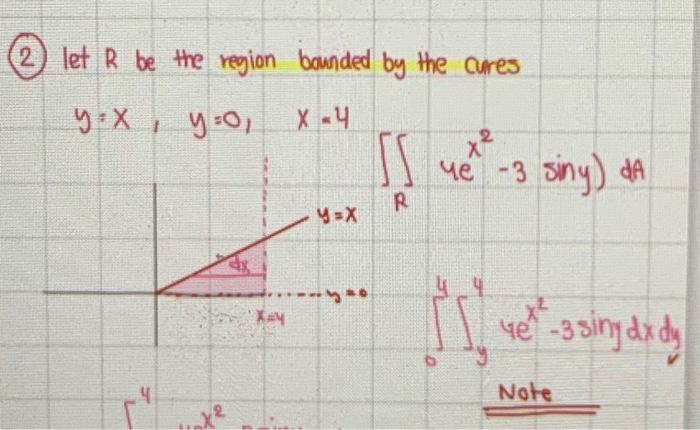 ② let R be the region bounded by the cures
y=x, y=0, x=4
∫∫_R 4e^x² -3 siny) dA
y=x
dx
y=0
x=4
∫_0^4 ∫_y^4 4e^x² -3 siny dx dy
Note
∫^4 x²